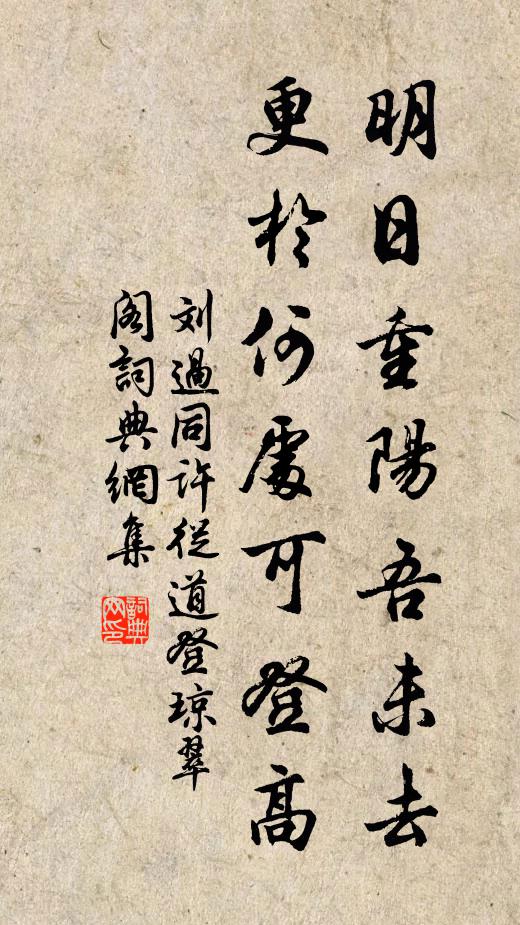 明日重陽吾未去
更於何處可登高
刘過同許從道登琼翠
閣詞典網集
詞典
网印